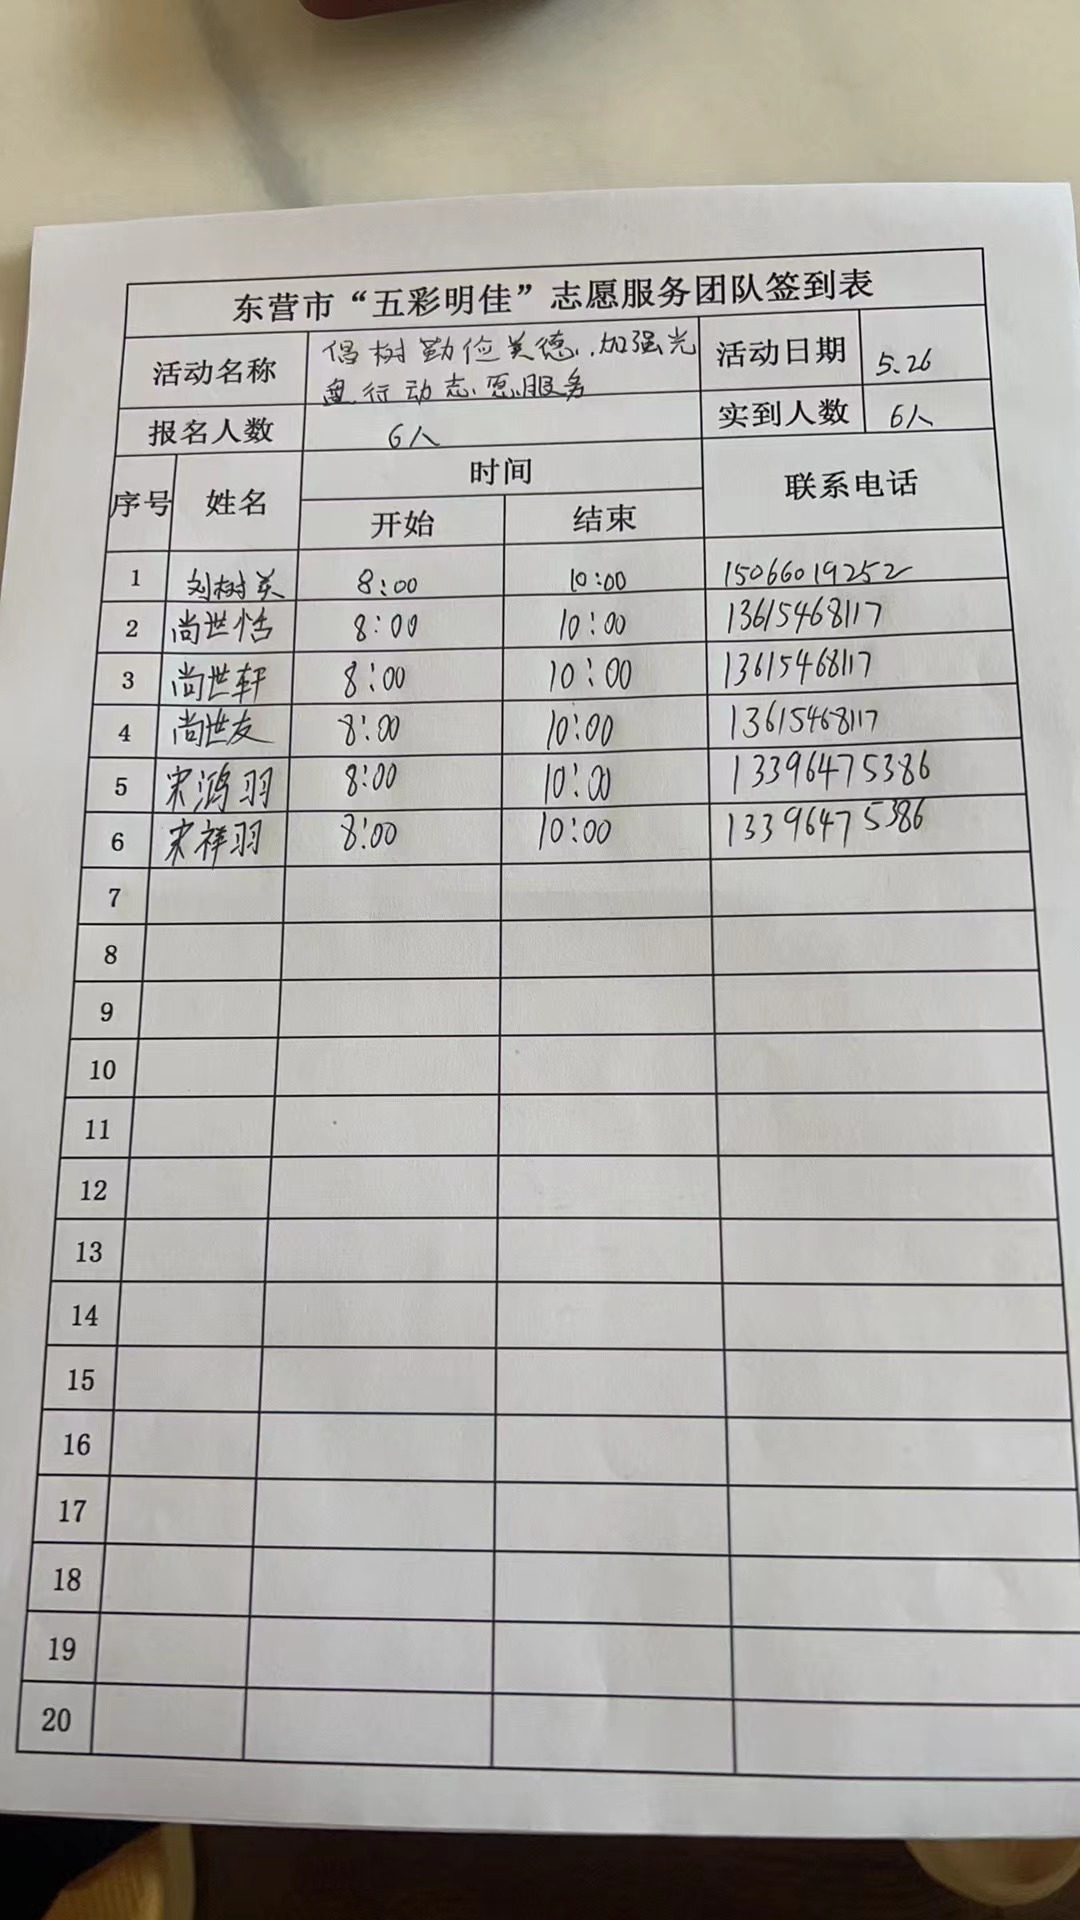 东营市“五彩明佳”志愿服务团队签到表
活动名称 倡树勤俭美德、加强光盘行动志愿服务 活动日期 5.26
报名人数 6人 实到人数 6人
序号 姓名 时间 联系电话
开始 结束
1 刘树美 8:00 10:00 15066019252
2 尚世恬 8:00 10:00 13615468117
3 尚世轩 8:00 10:00 13615468117
4 尚世友 8:00 10:00 13615468117
5 宋鸿羽 8:00 10:00 13396475386
6 宋祥羽 8:00 10:00 13396475386
7
8
9
10
11
12
13
14
15
16
17
18
19
20